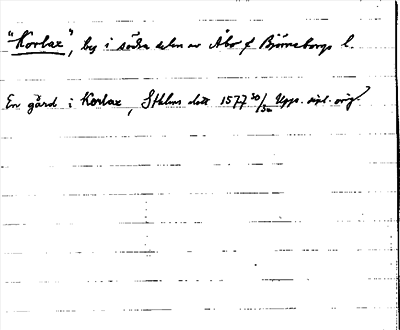 "Korlax", beg i södra delen av Åbo o Björneborgs l.
En gård i Korlax, Sthlms slott 1577 30/ Upps. dipl. orig.